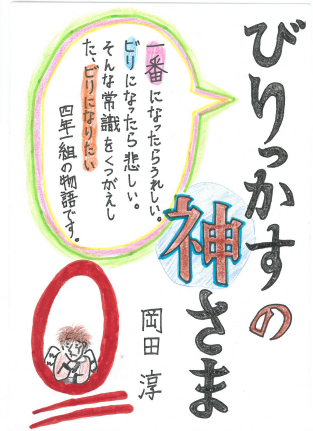 びりっかすの
神さま
岡田 淳
一番になったらうれしい。
ビリになったら悲しい。
そんな常識をくつがえし
た、ビリになりたい
四年一組の物語です。